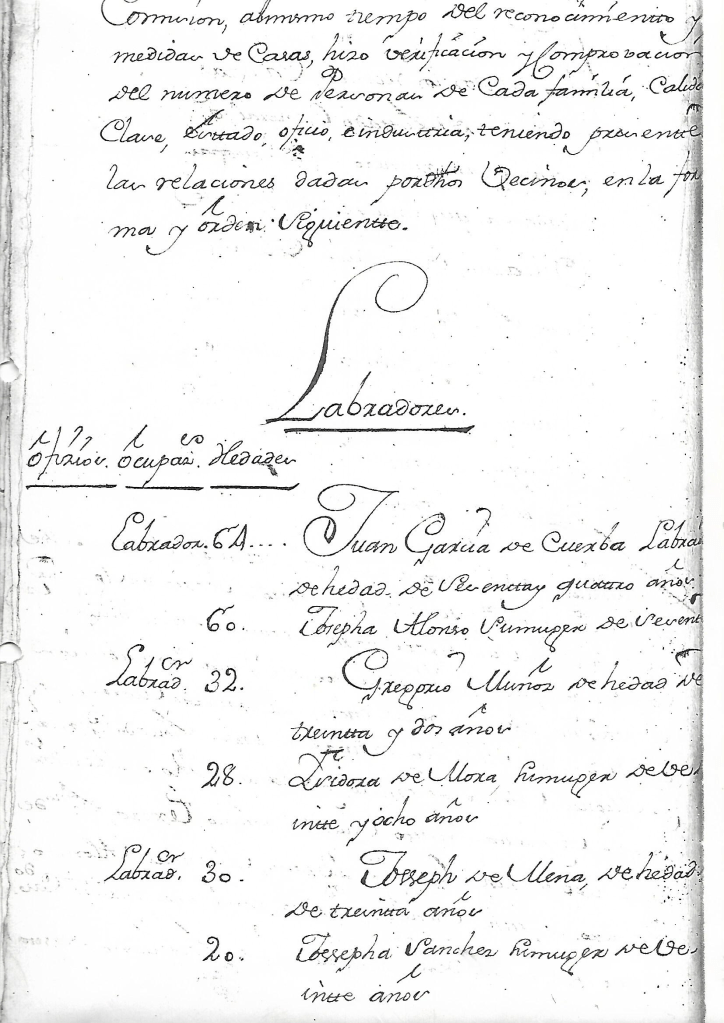 Comision, asimismo tiempo del reconocimiento y
medidas de Casas, hizo verificacion y Comprovacion
del numero de Personas de Cada familia, Calid
Clase, Esttado, oficio, e industria, teniendo presentte
las relaciones dadas por dhos Vecinos, en la for
ma y orden siguientte.
Labradores.
ofizios. ocupaz.es Hedades
Labrador. 64.... Juan Garcia de Cuerba Labra
de hedad de sesentta y quattro años
60. Josepha Alonso su muger de sesent
Labrad.or 32. Gregorio Muñoz de hedad de
treintta y dos años
28. Ysidora de Mora, su muger de ve
intte y ocho años
Labrad.or 30. Josseph de Mena, de hedad
de treintta años
20. Jossepha Sanchez su muger de ve
intte años